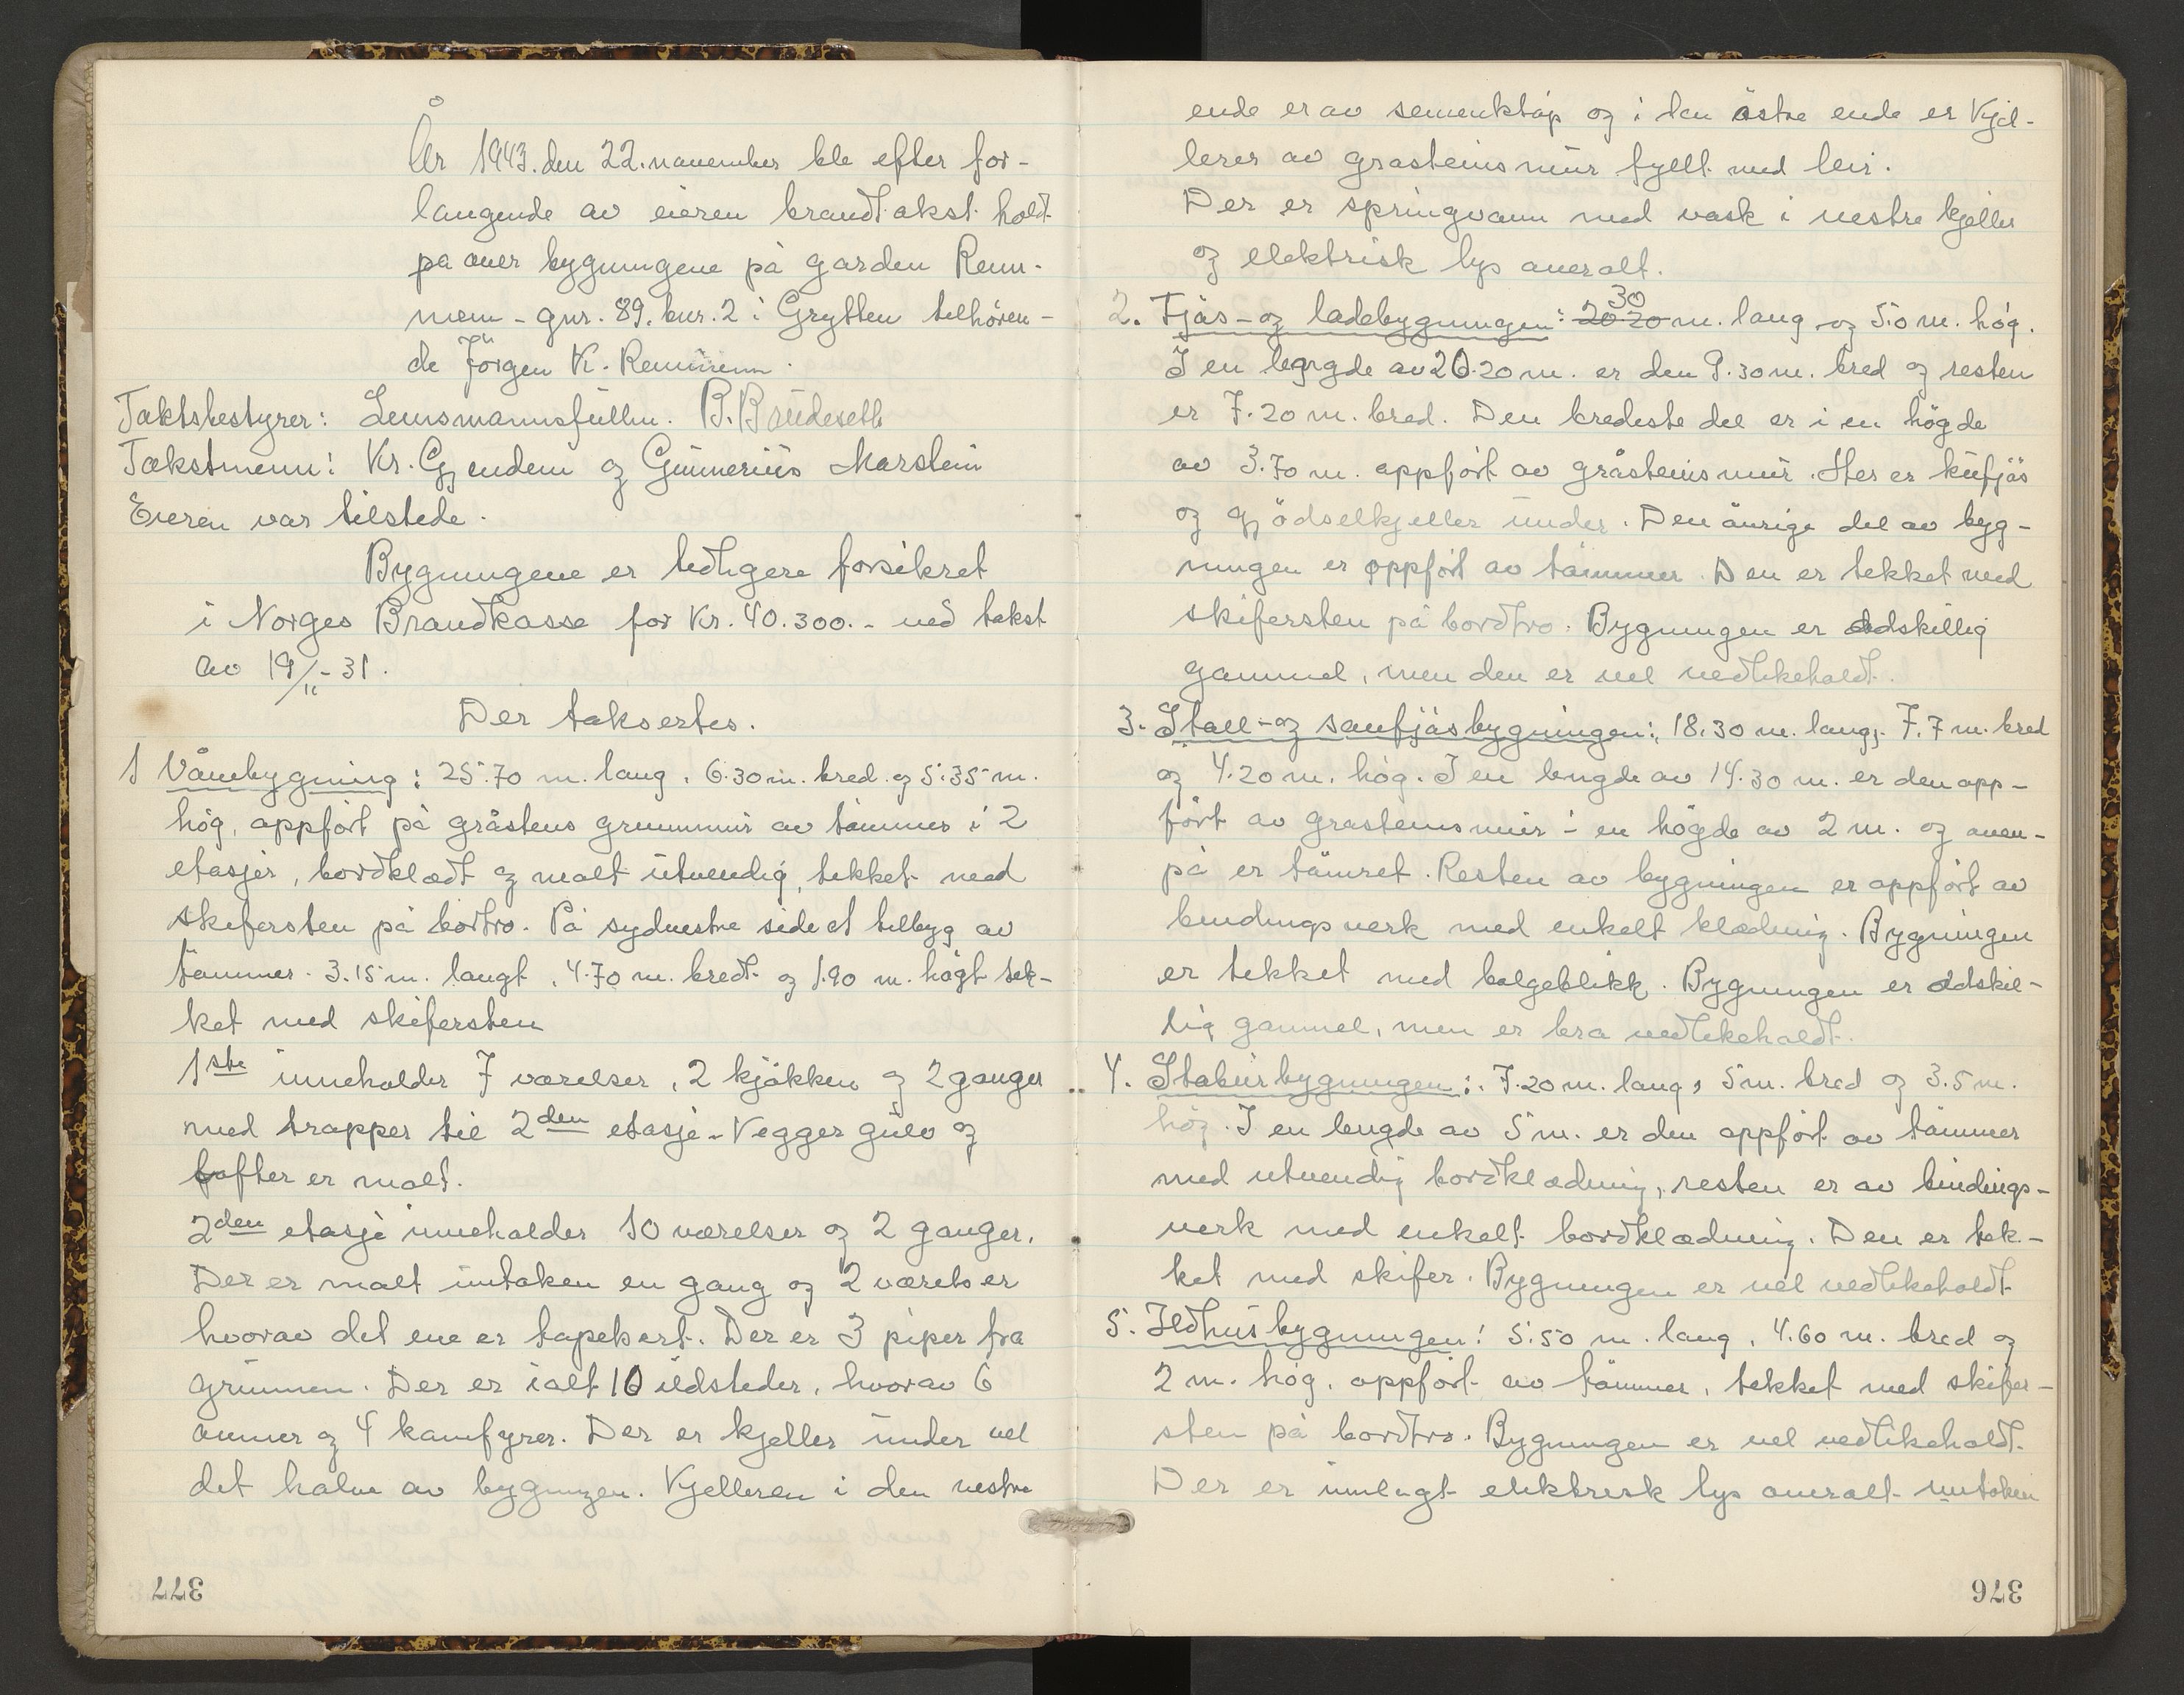 År 1943. den 22. november ble efter for-
langende av eieren brandtakst holdt
på over bygningene på garden Remm-
mem - gnr. 89. bnr. 2 i Grytten tilhören-
de Jörgen K. Remmem.
Takstbestyrer: Lensmannsfullm. B. Böudeseth
Takstmenn: Kr. Gjendem og Gunnerius Marstein
Eieren var tilstede.
Bygningene er tidligere forsikret
i Norges Brandkasse for Kr. 40.300.- ved takst
av 19/11-31.
Der taksertes.
1 Våmbygning: 25.70 m. lang, 6.30 m. bred og 5.35 m.
hög, oppfört på gråstens grunnmur av tömmer i 2
etasjer, bordklædt og malt utvendig, tekket med
skifersten på bortro. På sydvestre side et tilbyg av
tömmer. 3.15 m. langt, 4.70 m. bredt og 1.90 m. högt tek-
ket med skifersten
1ste inneholder 7 værelser, 2 kjökken og 2 ganger
med trapper til 2den etasje - Vegger gulv og
lofter er malt.
2den etasje inneholder 10 værelser og 2 ganger.
Der er malt untaken en gang og 2 værelser
hvorav det ene er tapetsert. Der er 3 piper fra
grunnen. Der er ialt 10 ildsteder, hvorav 6
ovner og 4 kamfyrer. Der er kjeller under vel
det halve av bygningen. Kjelleren i den vestre
377
ende er av sementstöp og i den östre ende er Kjel-
lerer av grasteinsmur fyllt med leir.
Der er springvann med vask i vestre kjeller
og elektrisk lys overalt.
2. Fjös- og ladebygningen: 20 20 30 m. lang og 5.0 m. hög.
I en lengde av 20.20 m. er den 9.30 m. bred og resten
er 7.20 m. bred. Den bredeste del er i en högde
av 3.70 m. oppfört av gråsteinsmur. Her er kufjös
og gjödselkjeller under. Den övrige del av byg-
ningen er oppfört av tömmer. Den er tekket med
skifersten på bordtro. Bygningen er adskillig
gammel, men den er vel vedlikeholdt.
3. Stall- og saufjösbygningen: 18.30 m. lang, 7.7 m. bred
og 4.20 m. hög. I en lengde av 14.30 m. er den opp-
fört av grasteinsmur i en högde av 2 m. og oven-
på er tömret. Resten av bygningen er oppfört av
bindingsverk med enkelt klædning. Bygningen
er tekket med bolgeblikk. Bygningen er adskil-
lig gammel, men er bra vedlikeholdt.
4. Stabursbygningen: 7.20 m. lang, 5 m. bred og 3.5 m.
hög. I en lengde av 5 m. er den oppfört av tömmer
med utvendig bordklædning, resten er av bindings-
verk med enkelt bordklædning. Den er tek-
ket med skifer. Bygningen er vel vedlikeholdt
5. Ildhusbygningen: 5.50 m. lang, 4.60 m. bred og
2 m. hög, oppfört av tömmer, tekket med skifer-
sten på bordtro. Bygningen er vel vedlikeholdt.
Der er innlagt elektrisk lys overalt untaken
376